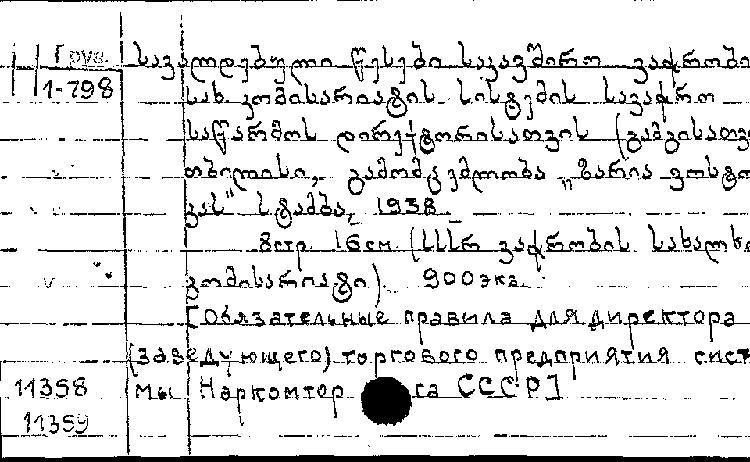 Груз. სავალდებულო წესები საკავშირო ვაჭრობი
1-798 სახ. კომისარიატის სისტემის სავაჭრო
საწარმოს დირექტორისათვის (გამგისათვი
თბილისი, გამომცემლობა „ზარია ვოსტო
კას" სტამბა, 1938.
8стр. 16см. (სსსრ ვაჭრობის სახალხო
კომისარიატი). 900экз.
[Обязательные правила для директора
(заведующего) торгового предприятия сист
11358 мы Наркомтор га СССР]
11359